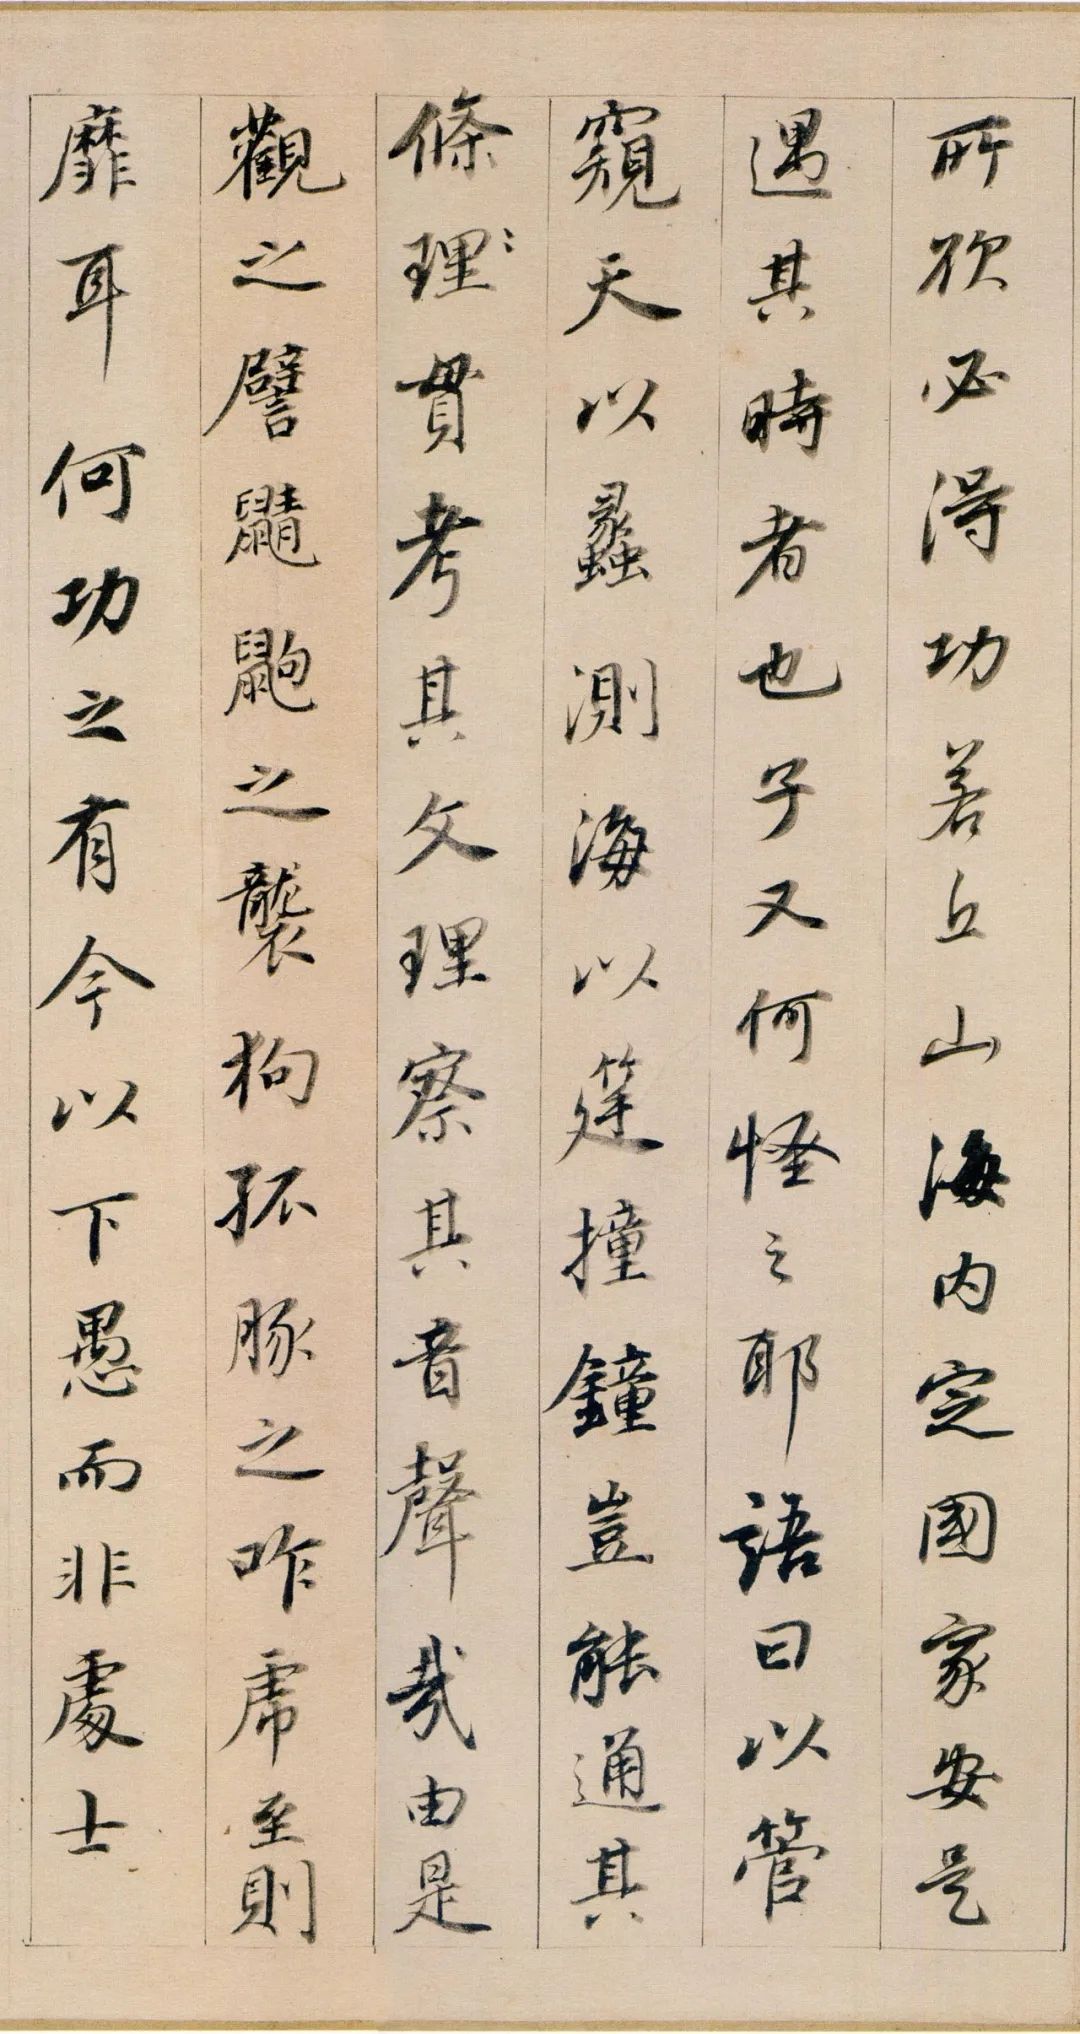 所欲必得功若丘山海内定國家安是
遇其時者也子又何怪之耶語曰以管
窺天以蠡測海以筳撞鐘豈能通其
條理〻貫考其文理察其音聲哉由是
觀之譬鼱鼩之襲狗孤豚之咋虎至則
靡耳何功之有今以下愚而非處士